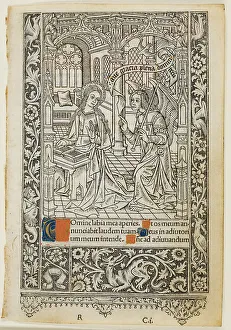 aue gratia plena
Domine labia mea aperies. Et os meum an
nunciabit laudem tuam. Deus in adiutori
um meum intende. Domine ad adiuuandum
R C.i.